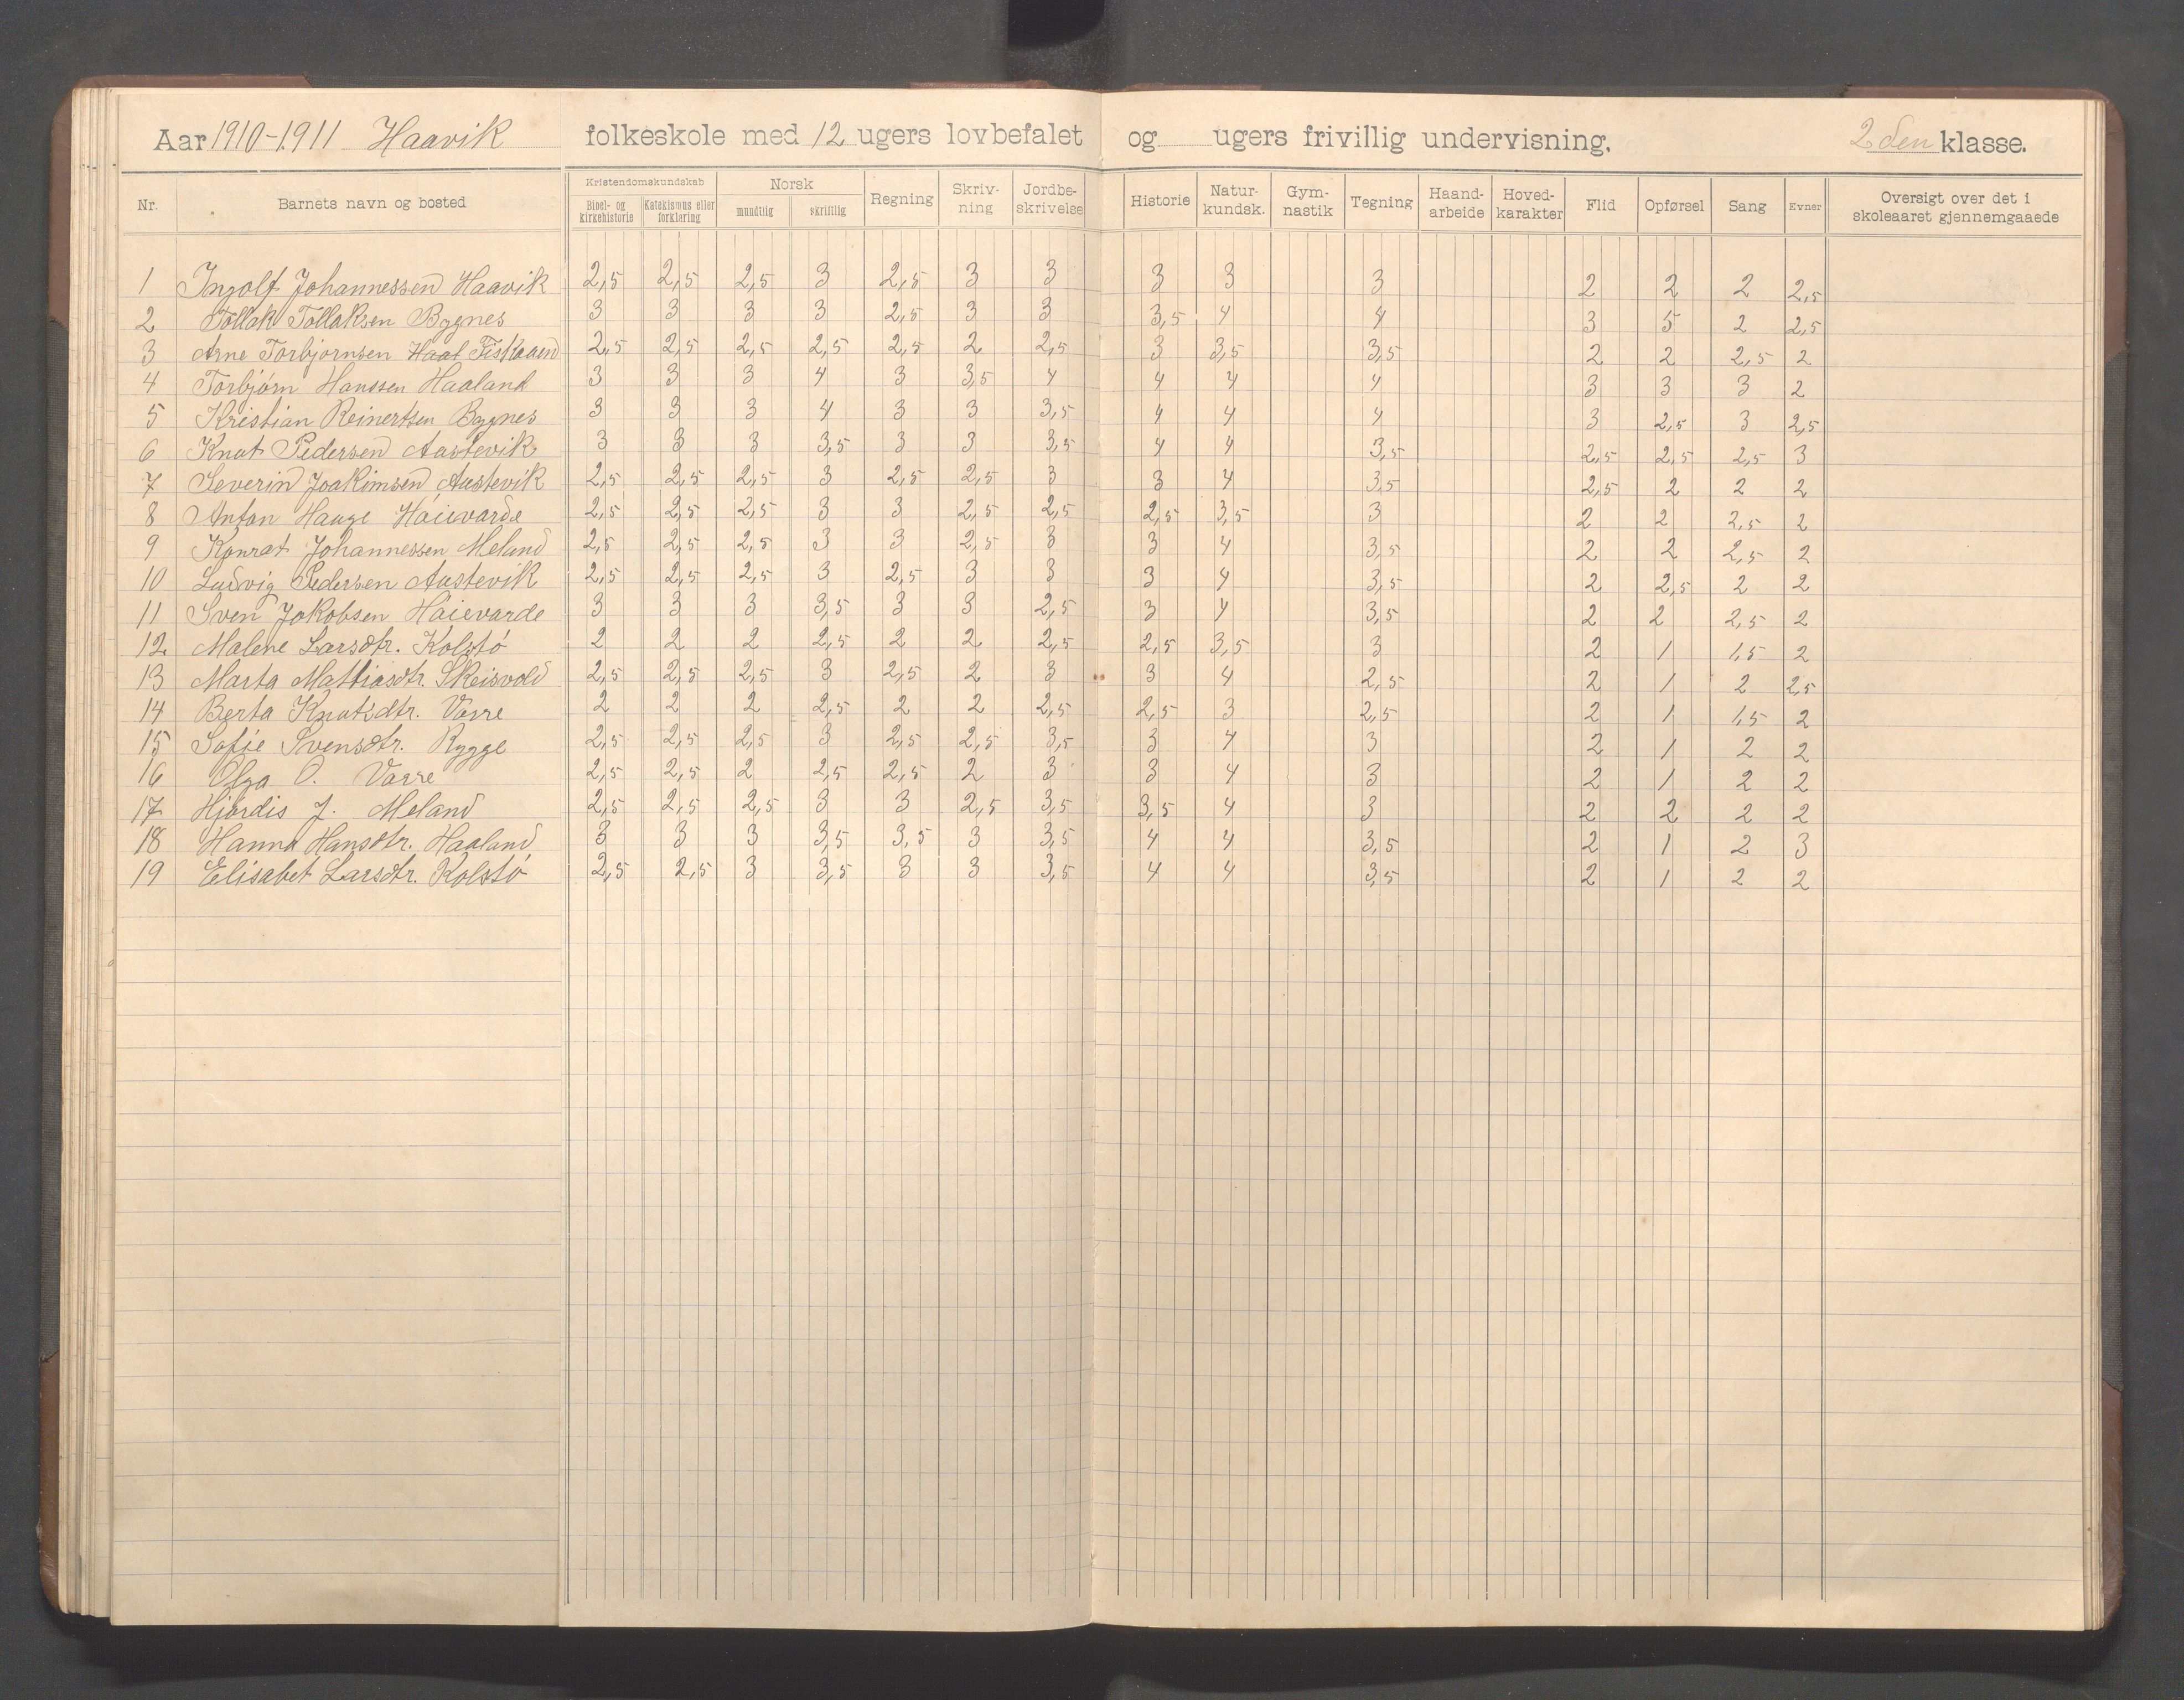 Aar 1910-1911 Haavik folkeskole med 12 ugers lovbefalet og ugers frivillig undervisning. 2den klasse.
Nr. Barnets navn og bosted Kristendomskundskab Bibel- og kirkehistorie Katekismus eller forklaring Norsk mundtlig skriftlig Regning Skriv-ning Jordbe-skrivelse Historie Natur-kundsk. Gym-nastik Tegning Haand-arbeide Hoved-karakter Flid Opførsel Sang Evner Oversigt over det i skoleaaret gjennemgaaede
1 Ingolf Johannessen Haavik 2,5 2,5 2,5 3 2,5 3 3 3 3 3 2 2 2 2,5
2 Tollak Tollaksen Bygnes 3 3 3 3 2,5 3 3 3,5 4 4 3 5 2 2,5
3 Arne Torbjørnsen Fiskaaen 2,5 2,5 2,5 2,5 2,5 2 2,5 3 3,5 3,5 2 2 2,5 2
4 Torbjørn Hanssen Haaland 3 3 3 4 3 3,5 4 4 4 4 3 3 3 2
5 Kristian Reinertsen Bygnes 3 3 3 4 3 3 3,5 4 4 4 3 2,5 3 2,5
6 Knut Pedersen Austevik 3 3 3 3,5 3 3 3,5 4 4 3,5 2,5 2,5 2,5 3
7 Severin Joakimsen Austevik 2,5 2,5 2,5 3 2,5 2,5 3 3 4 3,5 2,5 2 2 2
8 Anton Hauge Høievarde 2,5 2,5 2,5 3 3 2,5 2,5 2,5 3,5 3 2 2 2,5 2
9 Konrat Johannessen Meland 2,5 2,5 2,5 3 3 2,5 3 3 4 3,5 2 2 2,5 2
10 Ludvig Pedersen Austevik 2,5 2,5 2,5 3 2,5 3 3 3 4 3,5 2 2,5 2 2
11 Sven Jakobsen Høievarde 3 3 3 3,5 3 3 2,5 3 4 3,5 2 2 2,5 2
12 Malene Larsdtr. Kolstø 2 2 2 2,5 2 2 2,5 2,5 3,5 3 2 1 1,5 2
13 Marta Mathiasdtr. Skeisvold 2,5 2,5 2,5 3 2,5 2 3 3 4 2,5 2 1 2 2,5
14 Berta Knutsdtr. Vorre 2 2 2 2,5 2 2 2,5 2,5 3 2,5 2 1 1,5 2
15 Sofie Svensdtr. Rygge 2,5 2,5 2,5 3 2,5 2,5 3,5 3 4 3 2 1 2 2
16 Olga O. Vorre 2,5 2,5 2 2,5 2,5 2 3 3 4 3 2 1 2 2
17 Hjørdis J. Meland 2,5 2,5 2,5 3 3 2,5 3,5 3,5 4 3 2 2 2 2
18 Hanna Hansdtr. Haaland 3 3 3 3,5 3,5 3 3,5 4 4 3,5 2 1 2 3
19 Elisabet Larsdtr. Kolstø 2,5 2,5 3 3,5 3 3 3,5 4 4 3,5 2 1 2 2